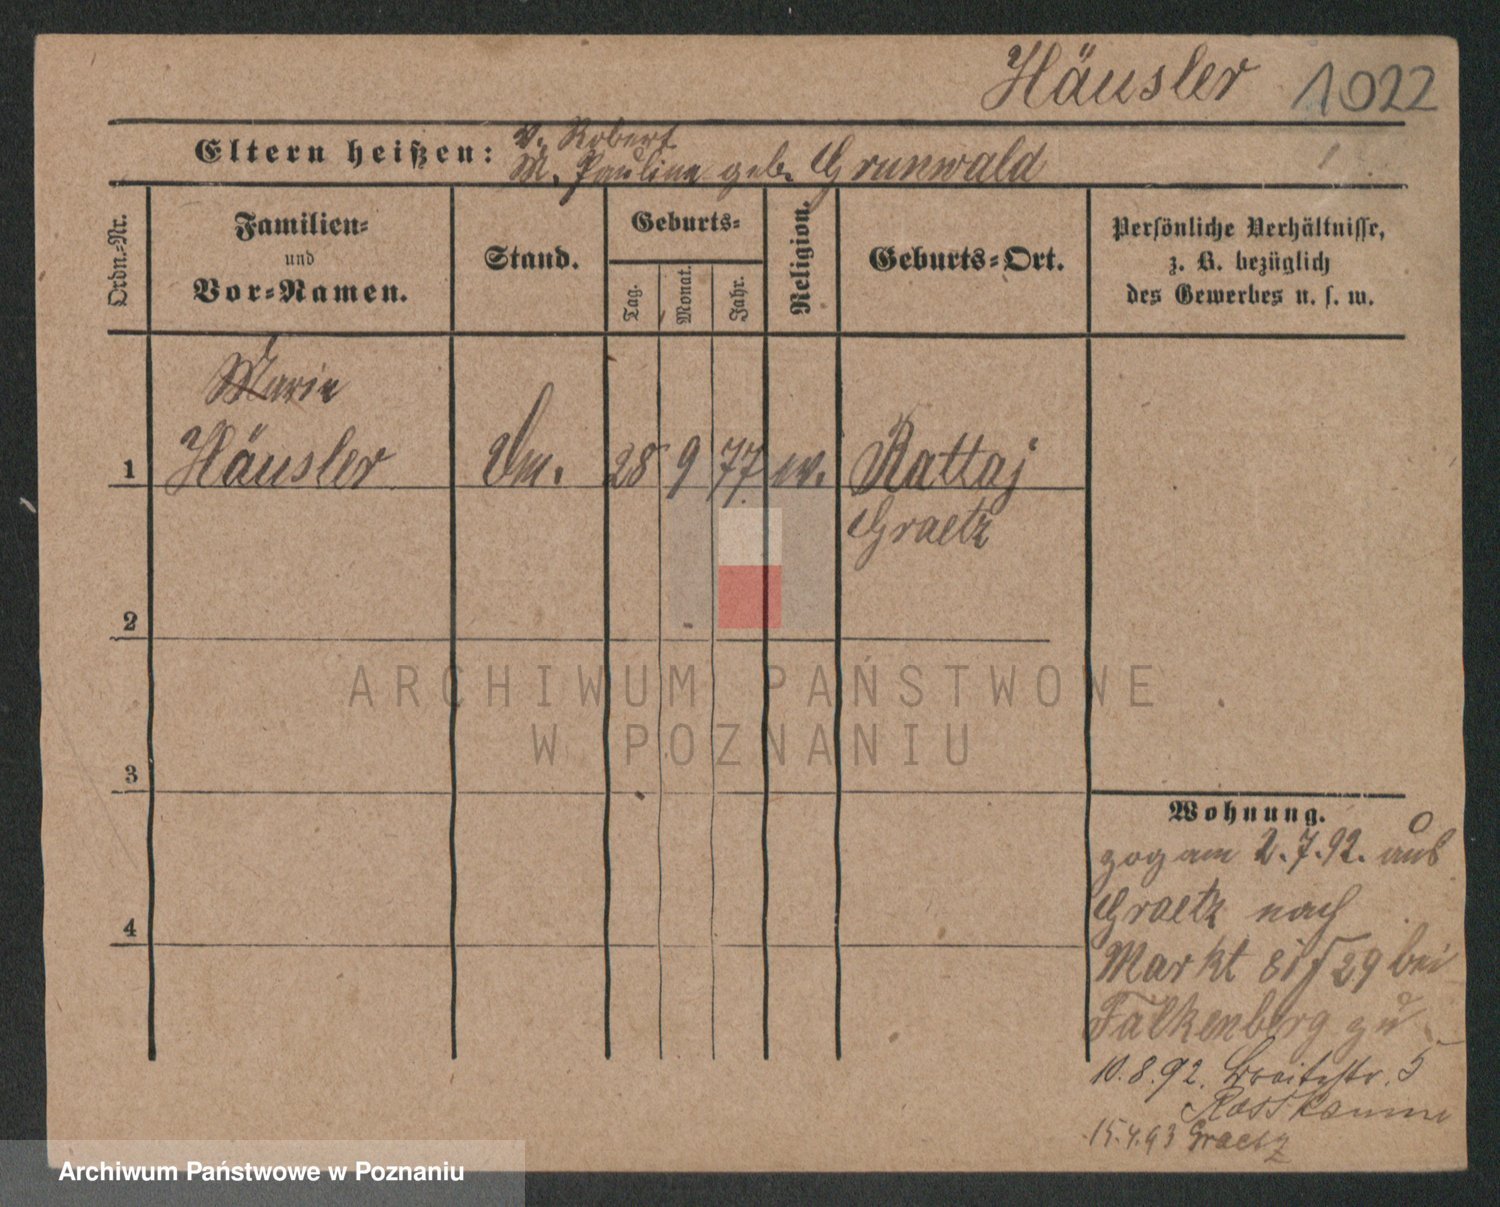 Häusler 1022
Eltern heißen:
V. Robert
M. Pauline geb. Grunwald
Ordn.-Nr.
Familien-
und
Vor-Namen.
Stand.
Geburts-
Tag.
Monat.
Jahr.
Religion.
Geburts-Ort.
Persönliche Verhältnisse,
z. B. bezüglich
des Gewerbes u. s. w.
Marie
1 Häusler 28 9 77 ev. Rattaj
Graetz
2
3
4
ARCHIWUM PAŃSTWOWE
W POZNANIU
Wohnung.
zog am 2.7.92. aus
Graetz nach
Markt 29 bei
Falkenberg zu
10.8.92. Breitestr. 5
15.4.93 Graetz
Archiwum Państwowe w Poznaniu